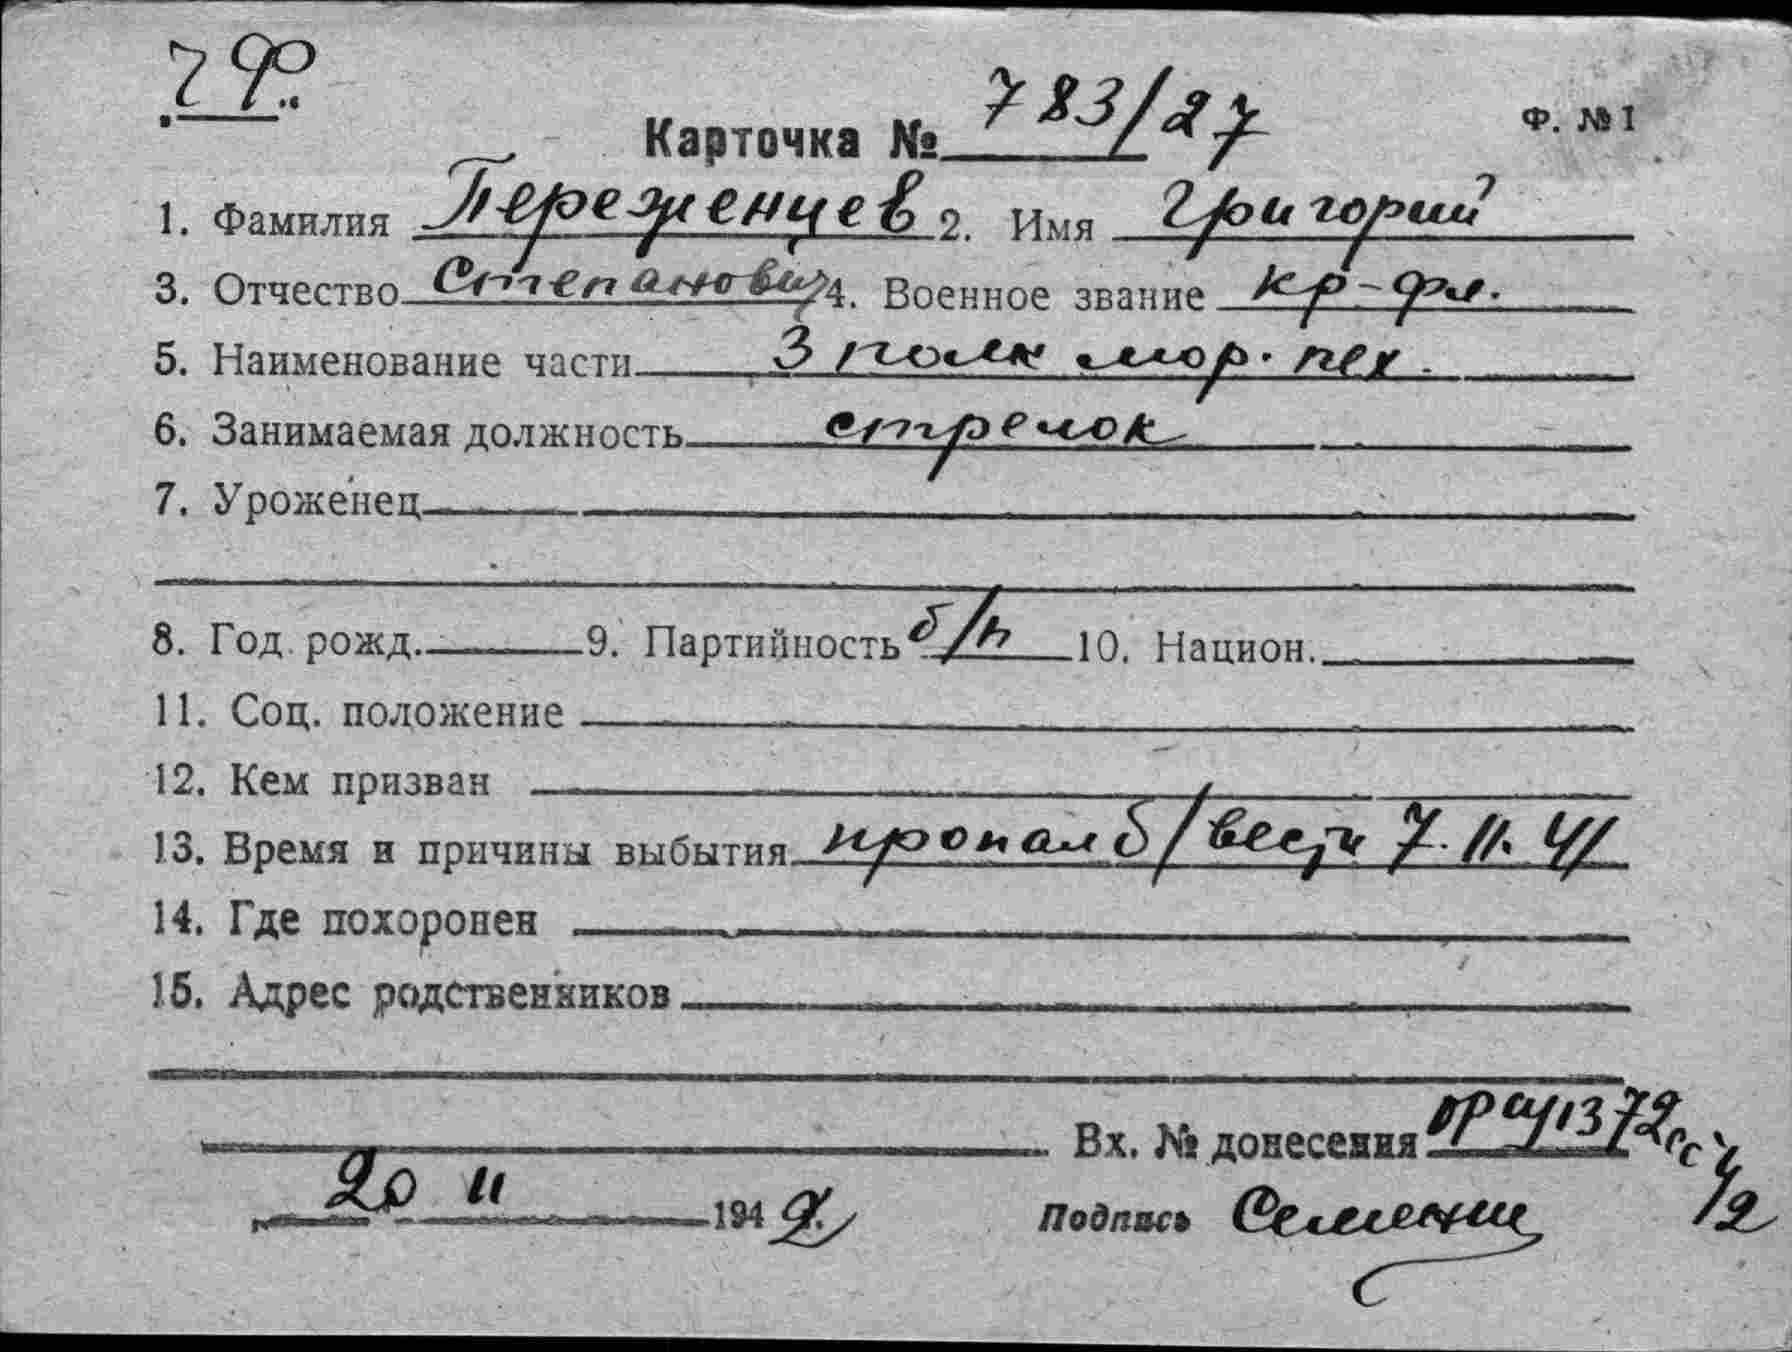 ЧФ.
Карточка № 783/27
Ф. № 1
1. Фамилия Переженцев 2. Имя Григорий
3. Отчество Степанович 4. Военное звание кр-фл.
5. Наименование части 3 полк мор. пех.
6. Занимаемая должность стрелок
7. Уроженец
8. Год рожд. 9. Партийность б/п 10. Национ.
11. Соц. положение
12. Кем призван
13. Время и причины выбытия пропал б/вести 7.11.41
14. Где похоронен
15. Адрес родственников
Вх. № донесения 1372сс
20 11 1942. Подпись